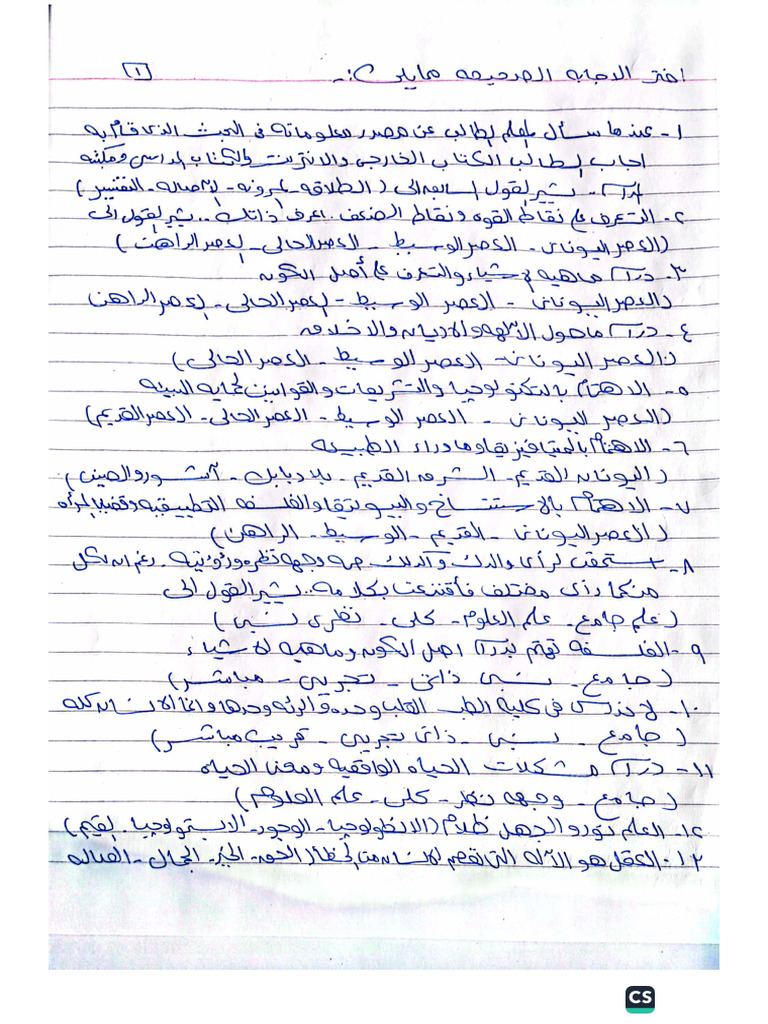 اختر الاجابه الصحيحه مايلى :- ١
١- عندما سأل المعلم الطالب عن مصدر معلوماته فى البحث الذى قام به
اجاب الطالب الكتاب الخارجى والانترنت والكتاب المدرسى ومكتبه
يشير القول السابق الى ( الطلاقه - المرونه - الاصاله - التفتسير )
٢- التعرف على نقاط القوه ونقاط الضعف . اعرف ذاتك .. يشير القول الى
(العصر اليونانى - العصر الوسيط - العصر الحالى - العصر الراهن )
٣- دراسة ماهيه الاشياء والتعرف على أصل الكون
(العصر اليونانى - العصر الوسيط - العصر الحالى - العصر الراهن
٤- دراسة ماحول الآلهه والاديان والاخلاق
(العصر اليونانى - العصر الوسيط - العصر الحالى )
٥- الاهتمام بالتكنولوجيا والتشريعات والقوانين لحمايه البيئه
(العصر اليونانى - العصر الوسيط - العصر الحالى - العصر القديم)
٦- الاهتمام بالميتافيزيقا وماوراء الطبيعه
( اليونان القديم - الشرق القديم - بلاد بابل - آشور والصين )
٧- الاهتمام بالاستنساخ والبيوتيقا والفلسفه التطبيقيه وقضايا المرأه
( العصر اليونانى - القديم - الوسيط - الراهن )
٨- استمعت لرأى والدك و وجهه نظره ورؤيته . رغم ان لكل
منكما رأى مختلف فأقتنعت بكلامه .. يشير القول الى
( علم جامع - علم العلوم - كلى - نظرى نسبى )
٩- الفلسفه تهتم بدراسة اصل الكون وماهيه الاشياء
( جامع - نسبى ذاتى - تجريبى - مباشر )
١٠- لا ندرس فى كليه الطب القلب وحده والرئه وحدها وانما الانسان كله
( جامع - نسبى - ذاتى تجريبى - مباشر )
١١- دراسة مشكلات الحياه الواقعيه ومعنى الحياه
( جامع - وجهه نظر - كلى - علم العلوم )
١٢- العلم نور و الجهل ظلام (الانطولوجيا - الوجود - الابستمولوجيا - القيم )
١٣- العقل هو الآله التى تعصم الانسان من أخطار - الخير - الجمال -
CS